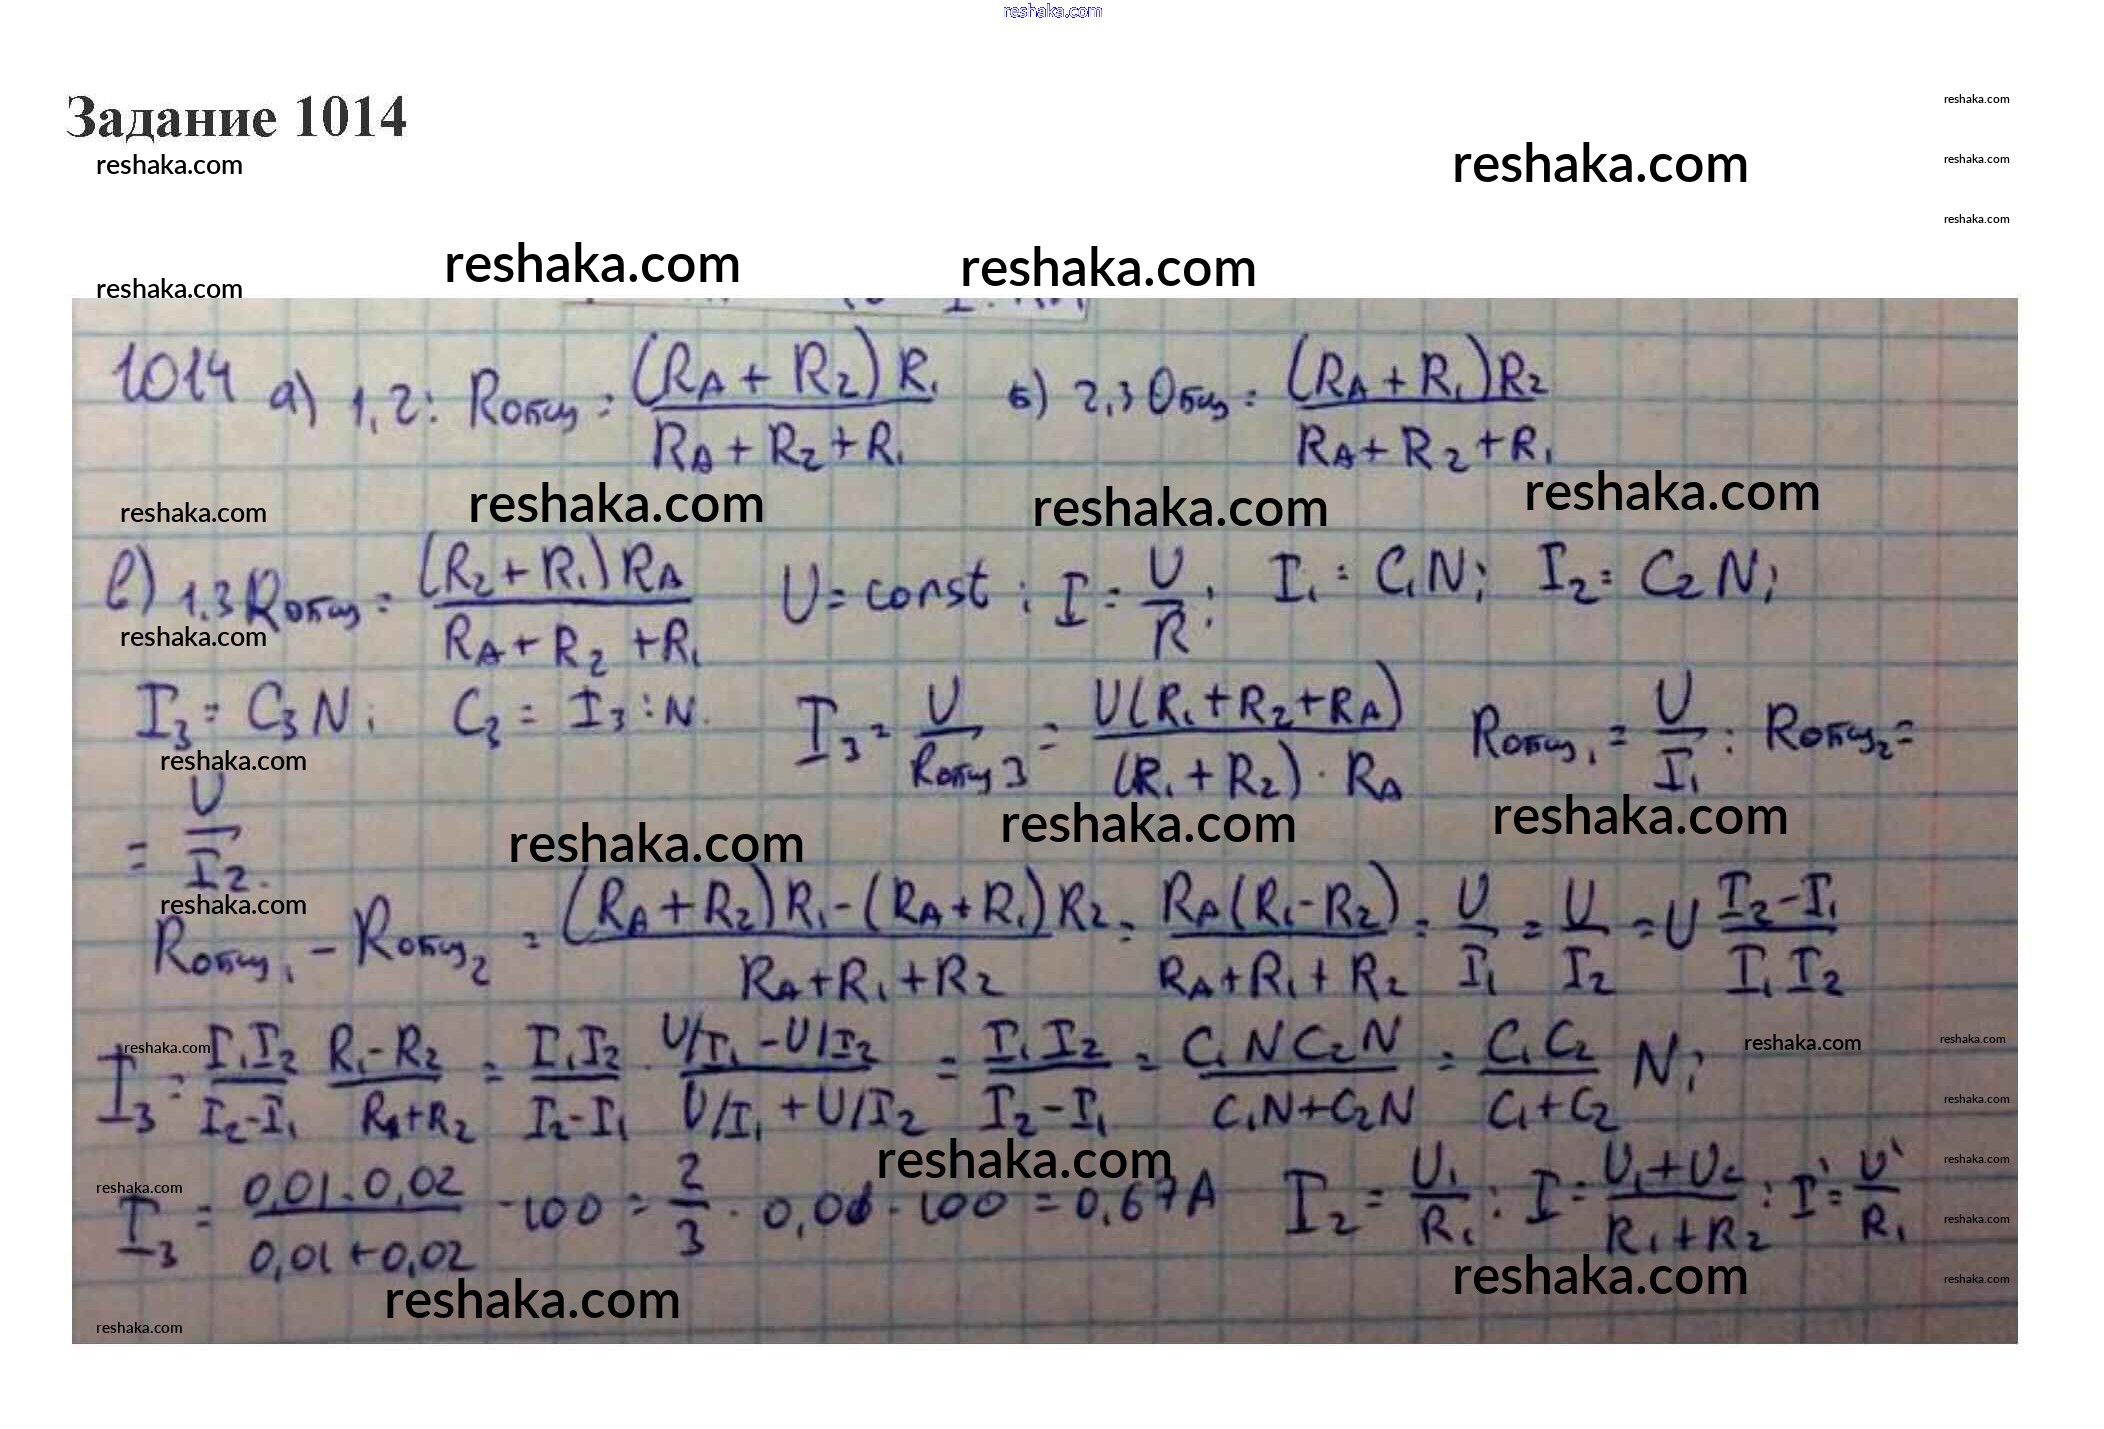 reshaka.com
Задание 1014
reshaka.com
reshaka.com
reshaka.com
reshaka.com
reshaka.com
reshaka.com
reshaka.com
reshaka.com
1014 а) 1,2: Rобщ = (RA + R2) R1 / RA + R2 + R1 б) 2,3 Общ = (RA + R1) R2 / RA + R2 + R1
reshaka.com
reshaka.com
reshaka.com
reshaka.com
в) 1.3 Rобщ = (R2 + R1) RA / RA + R2 + R1 U = const ; I = U / R ; I1 = C1N; I2 = C2N;
reshaka.com
I3 = C3N; C3 = I3 : N. I3 = U / Rобщ3 = U(R1 + R2 + RA) / (R1 + R2) · RA Rобщ1 = U / I1 : Rобщ2 =
reshaka.com
= U / I2.
reshaka.com
reshaka.com
reshaka.com
reshaka.com
Rобщ1 – Rобщ2 = (RA + R2) R1 - (RA + R1) R2 / RA + R1 + R2 = RA (R1 - R2) / RA + R1 + R2 = U / I1 = U / I2 = U I2 - I1 / I1 I2
reshaka.com
reshaka.com
reshaka.com
I3 = I1I2 / I2-I1 R1-R2 / R1+R2 = I1I2 / I2-I1 · U/I1 - U/I2 / U/I1 + U/I2 = I1I2 / I2-I1 = C1NC2N / C1N+C2N = C1C2 / C1+C2 N;
reshaka.com
reshaka.com
reshaka.com
reshaka.com
I3 = 0,01 · 0,02 / 0,01 + 0,02 · 100 = 2 / 3 · 0,01 · 100 = 0,67 A I2 = U1 / R1 : I = U1 + U2 / R1 + R2 : I' = U' / R1
reshaka.com
reshaka.com
reshaka.com
reshaka.com
reshaka.com